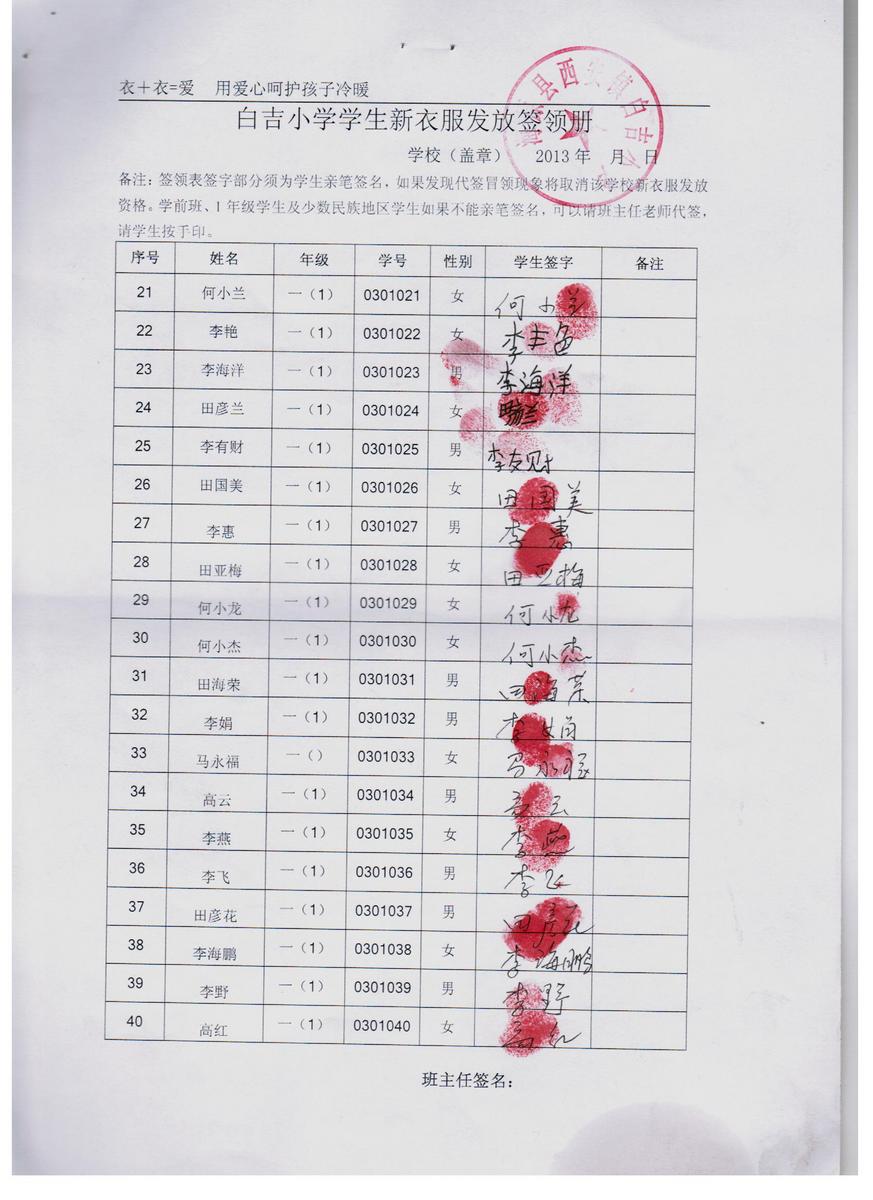 衣＋衣=爱 用爱心呵护孩子冷暖
白吉小学学生新衣服发放签领册
县西安镇白吉小
学校（盖章） 2013 年 月 日
备注：签领表签字部分须为学生亲笔签名，如果发现代签冒领现象将取消该学校新衣服发放
资格。学前班、1 年级学生及少数民族地区学生如果不能亲笔签名，可以请班主任老师代签，
请学生按手印。
序号 姓名 年级 学号 性别 学生签字 备注
21 何小兰 一（1） 0301021 女 何小兰
22 李艳 一（1） 0301022 女 李艳
23 李海洋 一（1） 0301023 男 李海洋
24 田彦兰 一（1） 0301024 女
25 李有财 一（1） 0301025 男 李友财
26 田国美 一（1） 0301026 女 田国美
27 李惠 一（1） 0301027 男 李惠
28 田亚梅 一（1） 0301028 女 田亚梅
29 何小龙 一（1） 0301029 女 何小龙
30 何小杰 一（1） 0301030 女 何小杰
31 田海荣 一（1） 0301031 男 田海荣
32 李娟 一（1） 0301032 男 李娟
33 马永福 一（） 0301033 女 马永福
34 高云 一（1） 0301034 男 高云
35 李燕 一（1） 0301035 女 李燕
36 李飞 一（1） 0301036 男 李飞
37 田彦花 一（1） 0301037 男 田彦花
38 李海鹏 一（1） 0301038 女 李海鹏
39 李野 一（1） 0301039 男 李野
40 高红 一（1） 0301040 女 高红
班主任签名：